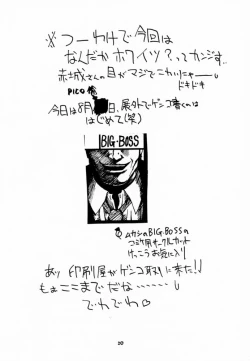 ※つーわけで今回は
なんだかホワイツ?ってカンジす。
赤城さんの目がマジでこわいにゃー
ドキドキ
PICO
今日は8月 日、屋外でゲンコ書くのは
はじめて(笑)
BIG-BOSS
ムカシのBIG-BOSSの
コミケ用サークルカット
けっこうお気に入り
あっ 印刷屋がゲンコ取りに来た!!
もぉここまでだな……し
でわでわ♡
20